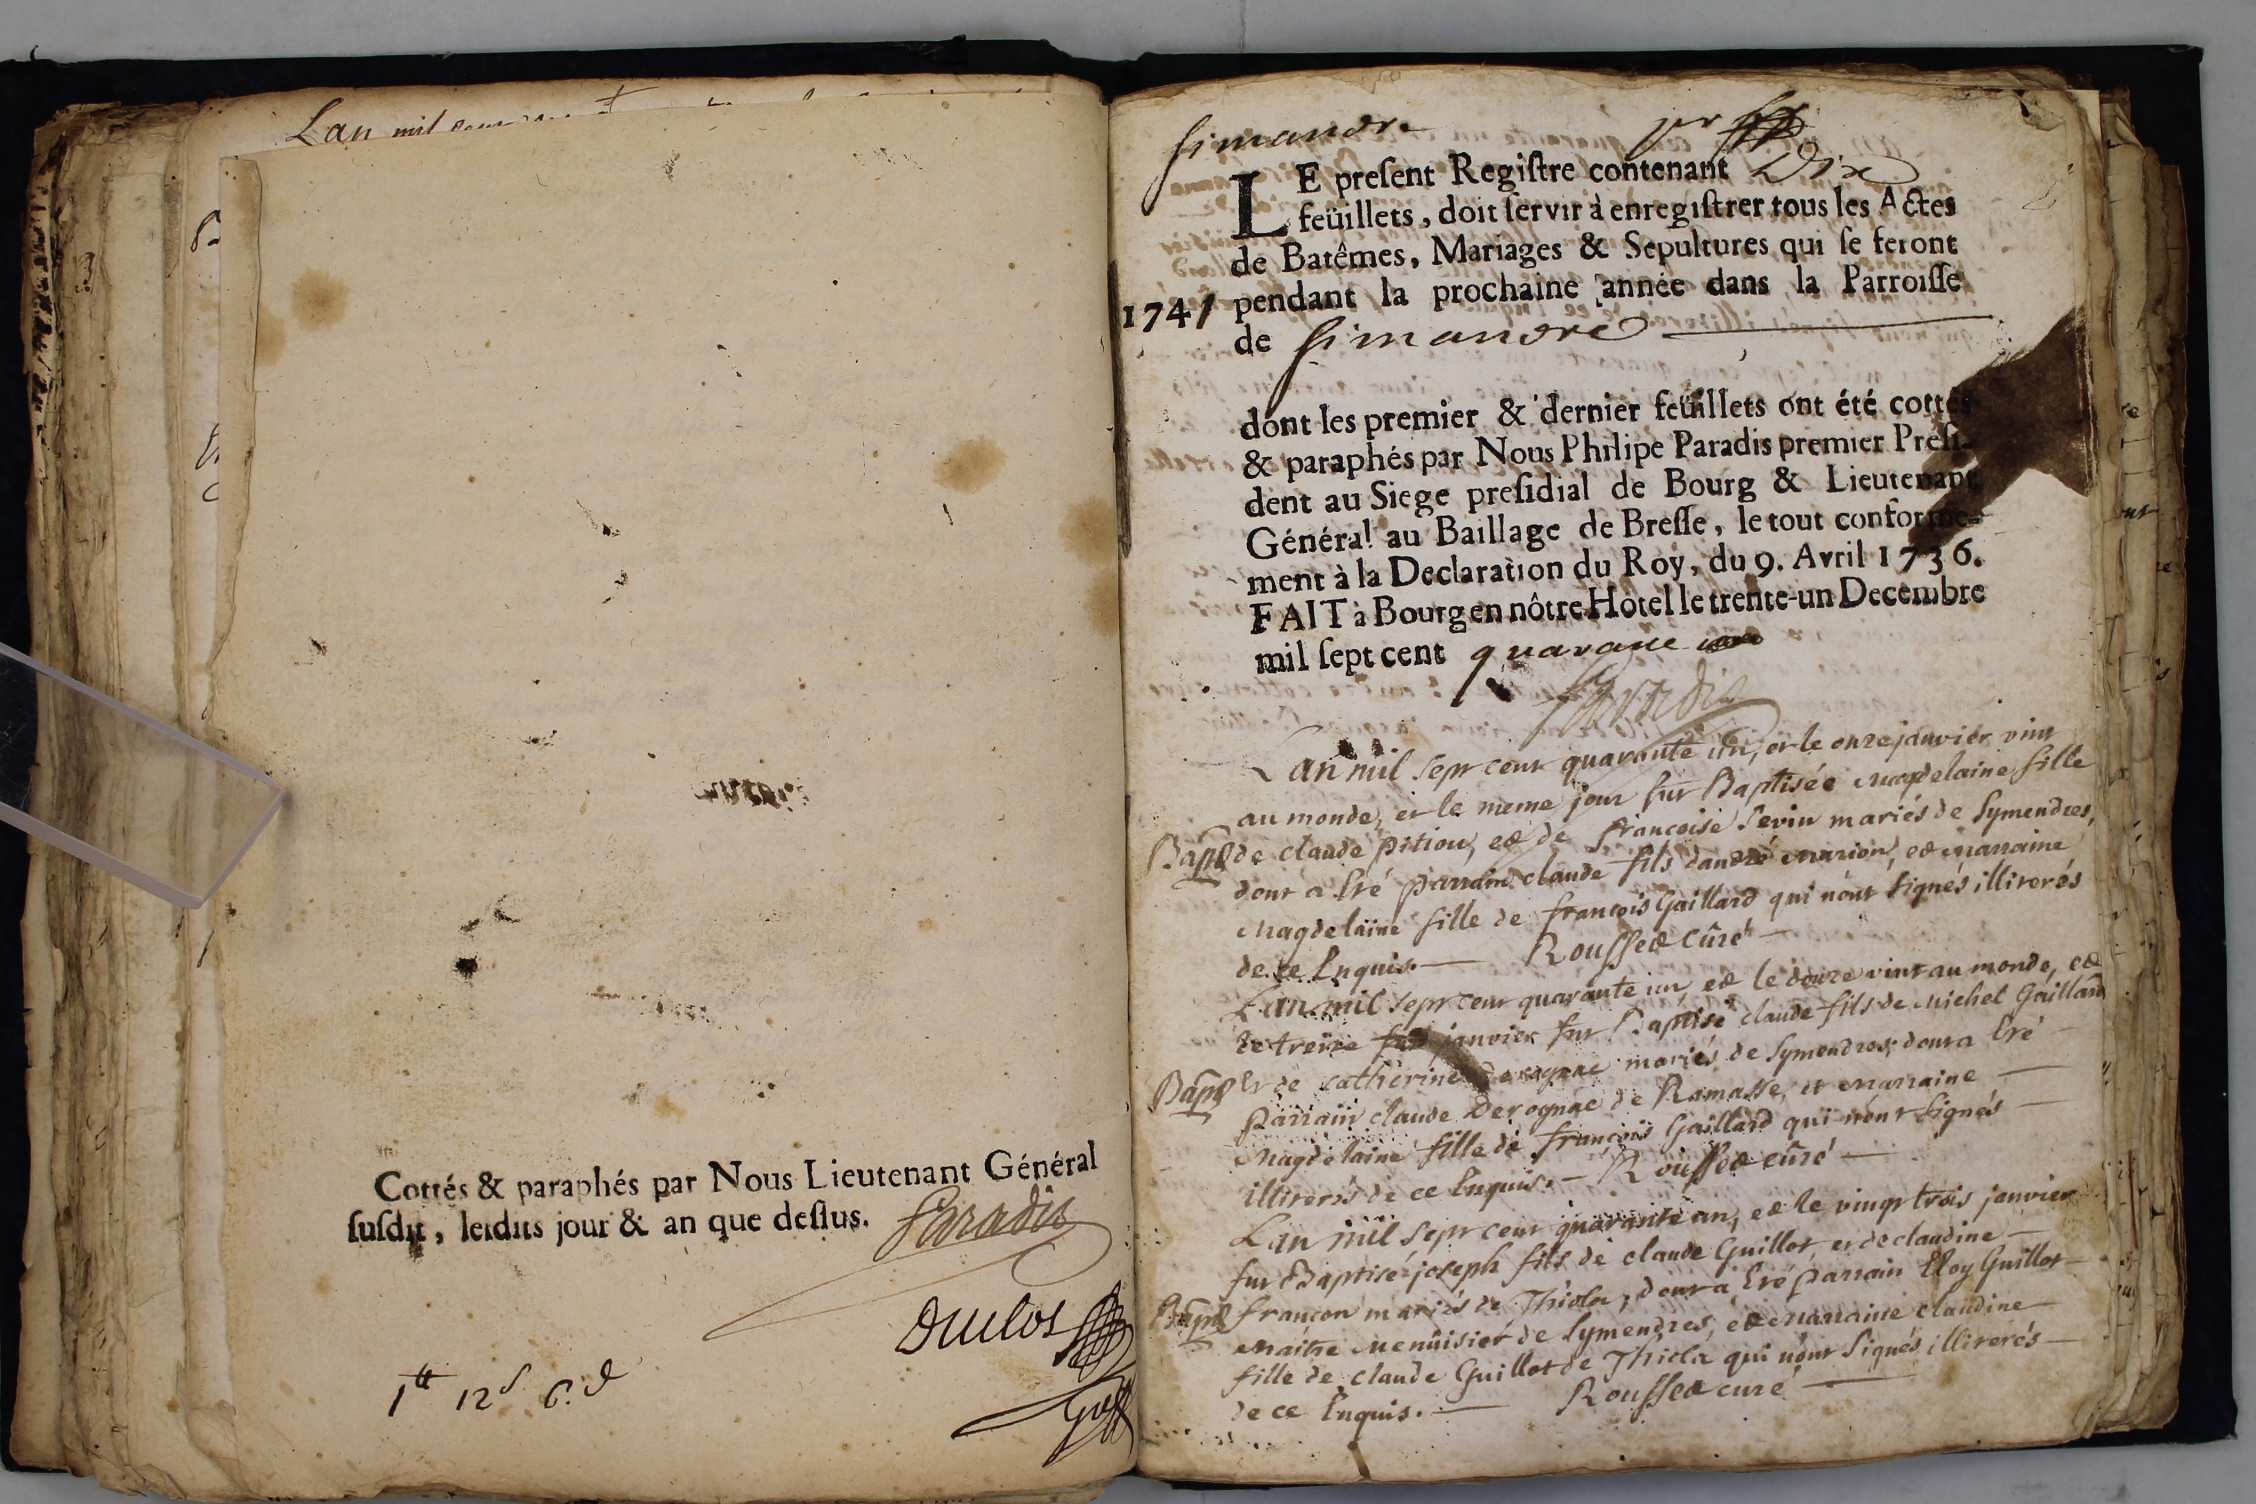 Lan mil
Cottés & paraphés par Nous Lieutenant Général
susdit, lesdits jour & an que dessus. Paradis
Duclos
1tt 12s 6.d
simandre per
LE present Registre contenant Dix
feüillets, doit servir à enregistrer tous les Actes
de Batêmes, Mariages & Sepultures qui se feront
1741 pendant la prochaine année dans la Parroisse
de simandre
dont les premier & dernier feüillets ont été cottés
& paraphés par Nous Philipe Paradis premier Presi-
dent au Siege presidial de Bourg & Lieutenant
Général au Baillage de Bresse, le tout conforme-
ment à la Declaration du Roy, du 9. Avril 1736.
FAIT à Bourg en nôtre Hôtel le trente-un Decembre
mil sept cent quarante
Paradis
Lan mil sept cent quarante un, et le onze janvier vint
au monde, et le meme jour fut Baptisée Magdelaine fille
Bapt de claude pitiou, et de francoise Sevin mariés de Symendres,
dont a Eté parrain claude fils dandré Marion, et Marraine
Magdelaine fille de françois Gaillard qui n'ont signés illiterés
de ce Enquis. Roussed curé
Lan mil sept cent quarante un, et le douze vint au monde, et
le treize janvier fut Baptisé claude fils de Michel Gaillard
Bapt Et de catherine derognac mariés de Symendres, dont a Eté
parrain claude Derognac de Ramasse, et Marraine
Magdelaine fille de françois Gaillard qui n'ont signés
illiterés de ce Enquis. Roussed curé
Lan mil sept cent quarante un, et le vingt trois janvier
fut Baptisé joseph fils de claude Guillot, et de claudine
Bapt francon mariés de Thiola, dont a Eté parrain Eloy Guillot
Maitre Menuisier de Symendres, et Marraine claudine
fille de claude Guillot de Thiola qui n'ont signés illiterés
de ce Enquis. Roussed curé